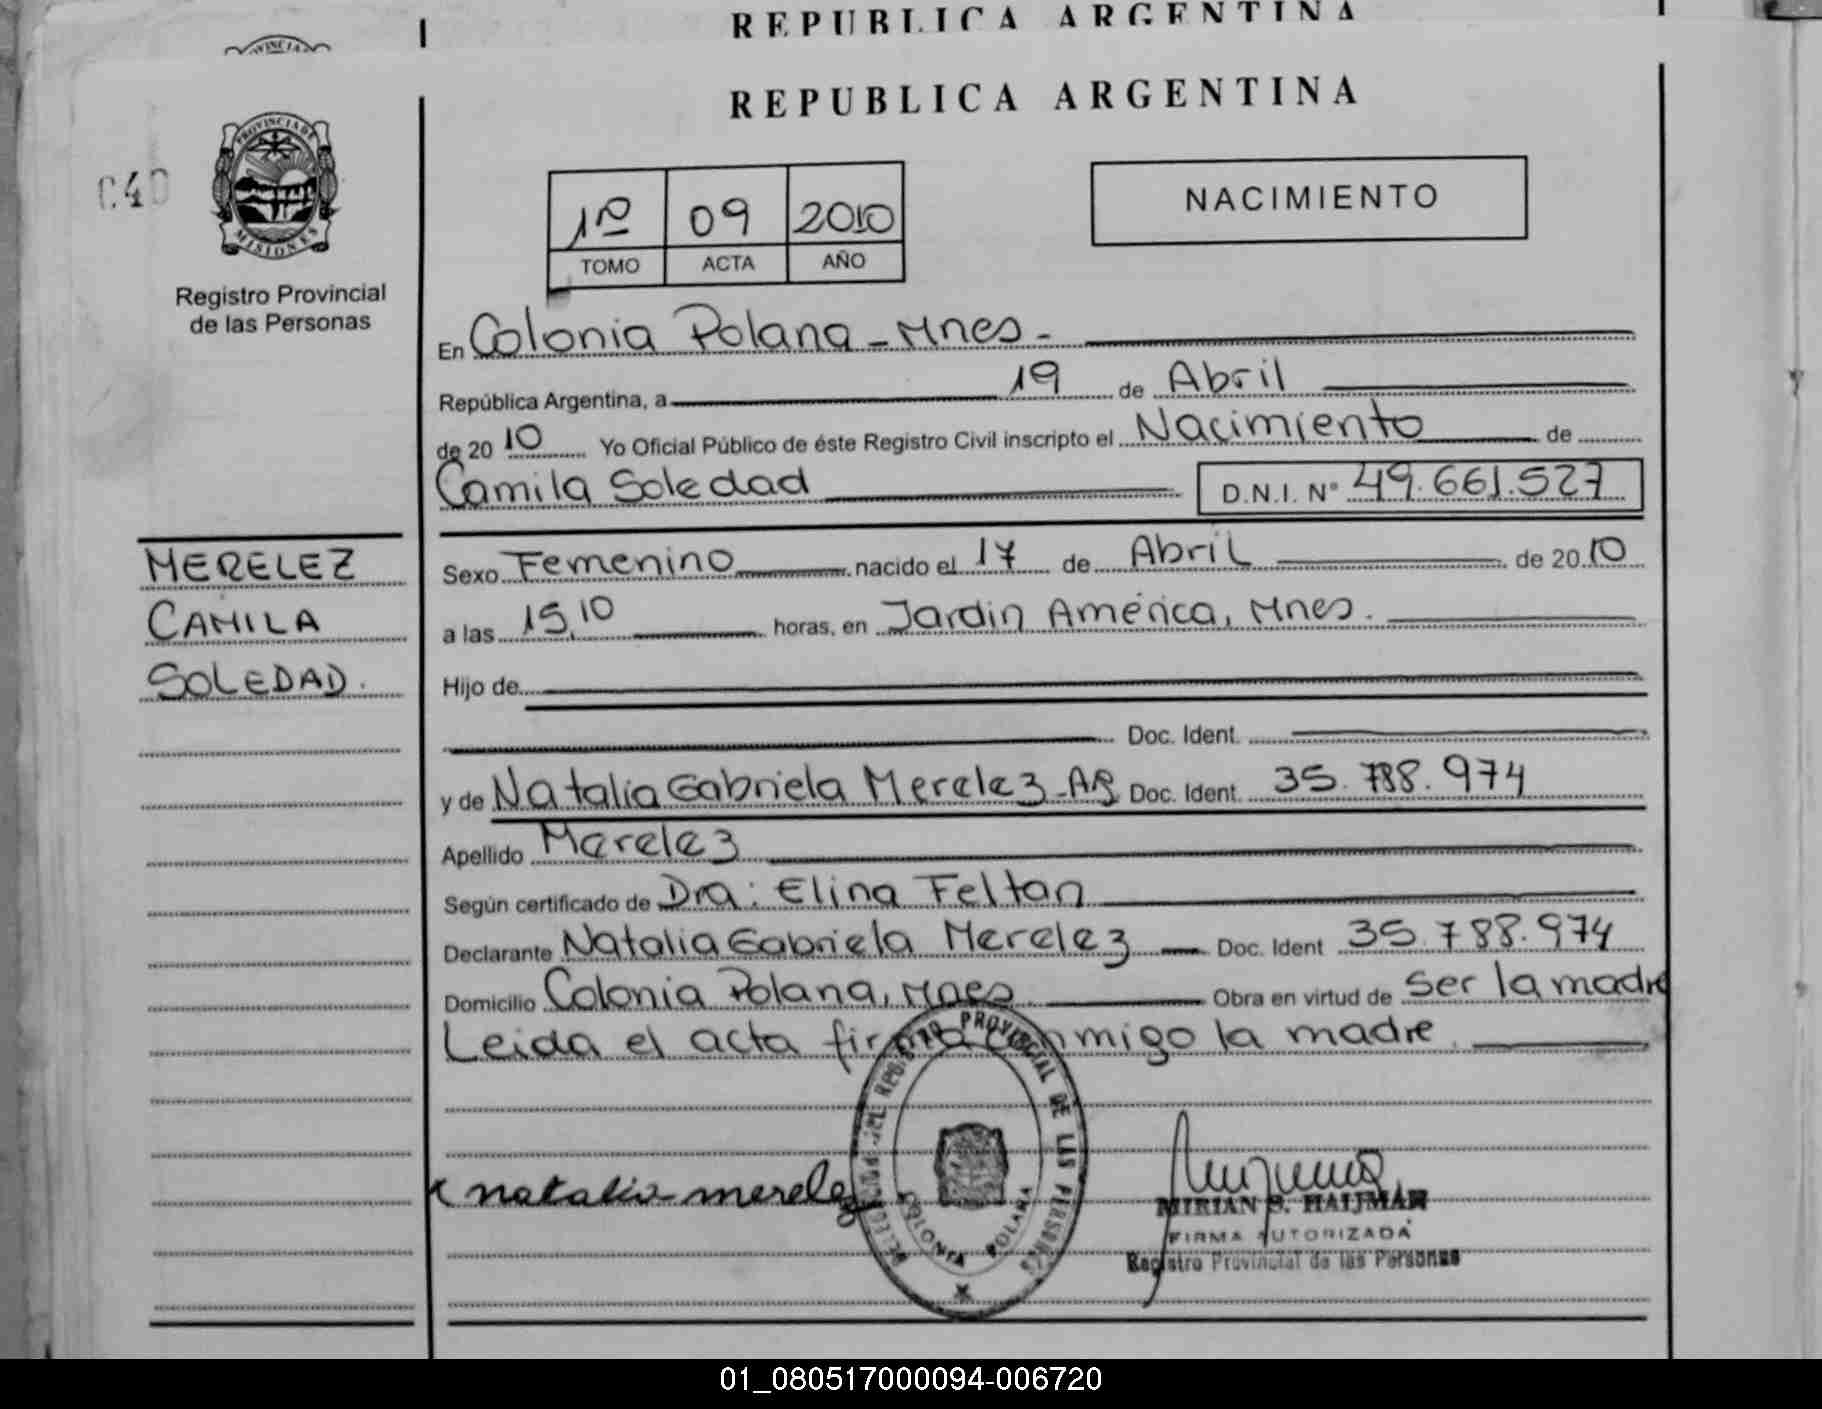 REPUBLICA ARGENTINA
REPUBLICA ARGENTINA
PROVINCIA DE
MISIONES
Registro Provincial
de las Personas
1º 09 2010
TOMO ACTA AÑO
NACIMIENTO
En Colonia Polana - Mnes -
República Argentina, a 19 de Abril
de 2010 Yo Oficial Público de éste Registro Civil inscripto el Nacimiento de
Camila Soledad D.N.I. Nº 49.661.527
MERELEZ
CAMILA
SOLEDAD.
Sexo Femenino nacido el 17 de Abril de 2010
a las 15,10 horas, en Jardin América, Mnes.
Hijo de
Doc. Ident.
y de Natalia Gabriela Merelez - AR Doc. Ident. 35.788.974
Apellido Merelez
Según certificado de Dra: Elina Feltan
Declarante Natalia Gabriela Merelez Doc. Ident 35.788.974
Domicilio Colonia Polana, Mnes Obra en virtud de ser la madre
Leida el acta firma conmigo la madre.
REGISTRO PROVINCIAL DE LAS PERSONAS
COLONIA POLANA
natalia merelez
MIRIAN S. HAIJMAN
FIRMA AUTORIZADA
Registro Provincial de las Personas
01_080517000094-006720